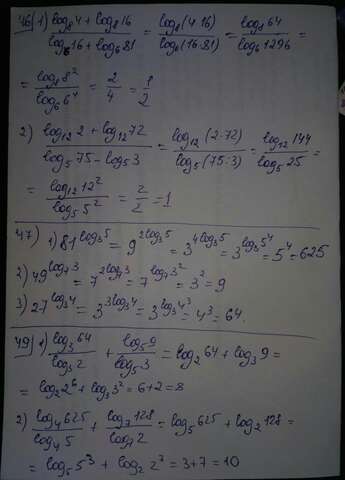 46) 1) (log₈4 + log₈16)/(log₆16 + log₆81) = log₈(4·16)/log₆(16·81) = log₈64/log₆1296 =
= log₈8²/log₆6⁴ = 2/4 = 1/2
2) (log₁₂2 + log₁₂72)/(log₅75 - log₅3) = log₁₂(2·72)/log₅(75:3) = log₁₂144/log₅25 =
= log₁₂12²/log₅5² = 2/2 = 1
47) 1) 81^(log₃5) = 9^(2log₃5) = 3^(4log₃5) = 3^(log₃5⁴) = 5⁴ = 625
2) 49^(log₇3) = 7^(2log₇3) = 7^(log₇3²) = 3² = 9
3) 27^(log₃4) = 3^(3log₃4) = 3^(log₃4³) = 4³ = 64.
49) 1) log₃64/log₃2 + log₅9/log₅3 = log₂64 + log₃9 =
= log₂2⁶ + log₃3² = 6+2 = 8
2) log₄625/log₄5 + log₇128/log₇2 = log₅625 + log₂128 =
= log₅5³ + log₂2⁷ = 3+7 = 10